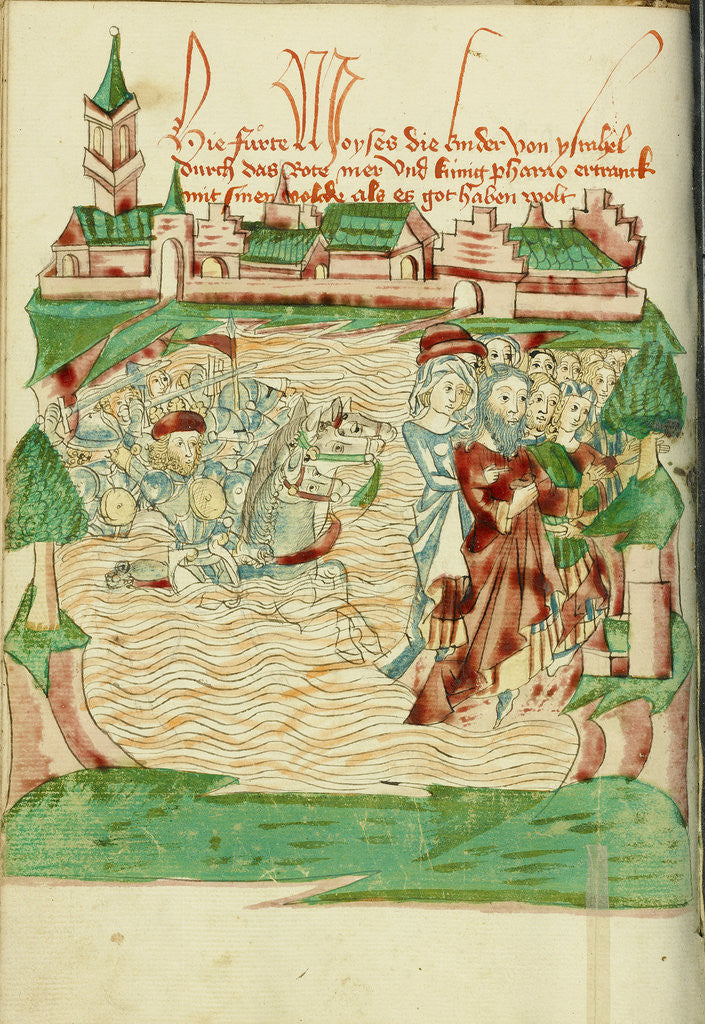 Hie fůrte Moyses die kinder von ysrahel
durch das Rote mer Und kůnig pharao ertranck
mit sinen volcke als es got haben wolt